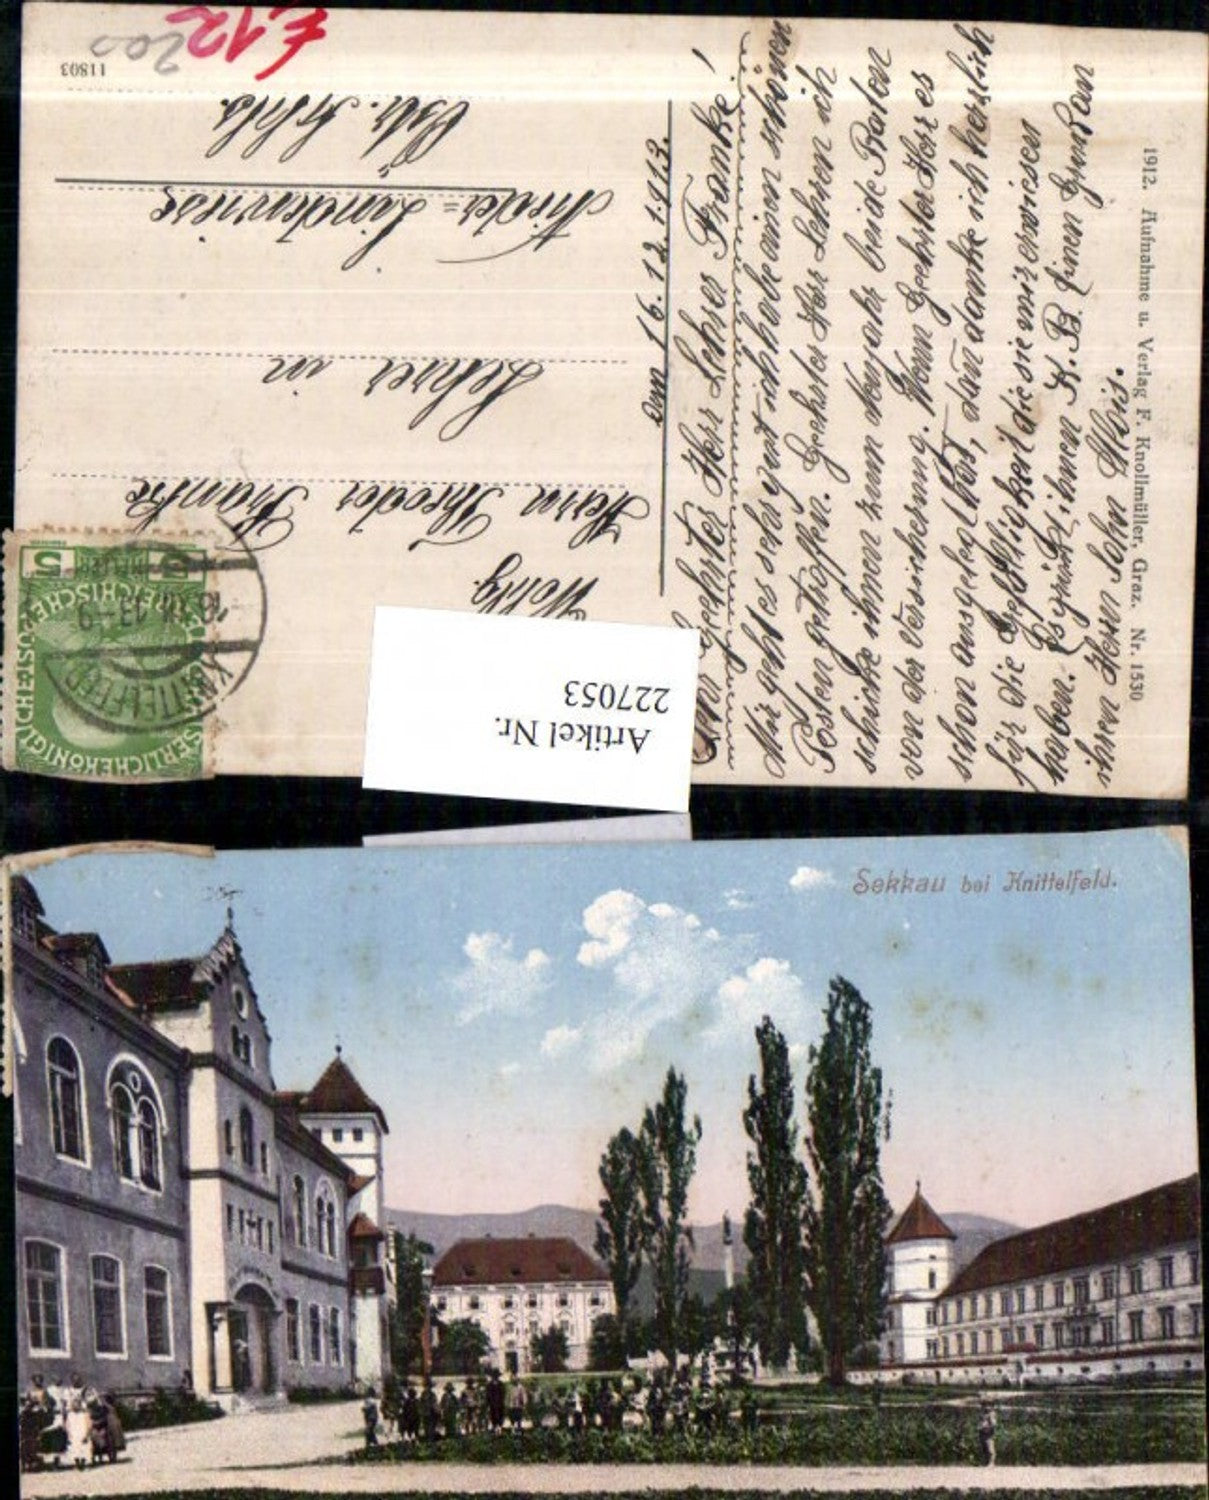 £12
200
11803
Wohlg.
Herrn Theodor Franke
Lehrer in
Nieder-Lindewiese
Östr. Schls.
KAISERLICHE KÖNIGLICHE ÖSTERREICHISCHE POST
5 HELLER 5
KNITTELFELD
16.XII.13-9
Artikel Nr.
227053
am 16.12.1913.
Sehr geehrter Herr Lehrer Franke!
Mir geht es sehr gut ich habe einen schönen
Posten getroffen. Geehrter Herr Lehrer ich
schicke ihnen zum Neujahr beide Raten
von der Versicherung. Wenn Geehrter Herr es
schon ausgelegt hat, dan danke ich herzlich
für die Gefälligkeit die sie mir erwiesen
haben. Es grüßt ihnen K. B. Einen Gruß an
ihren Herrn Sohn Alois.
1912. Aufnahme u. Verlag F. Knollmüller, Graz. Nr. 1530
Sekkau bei Knittelfeld.